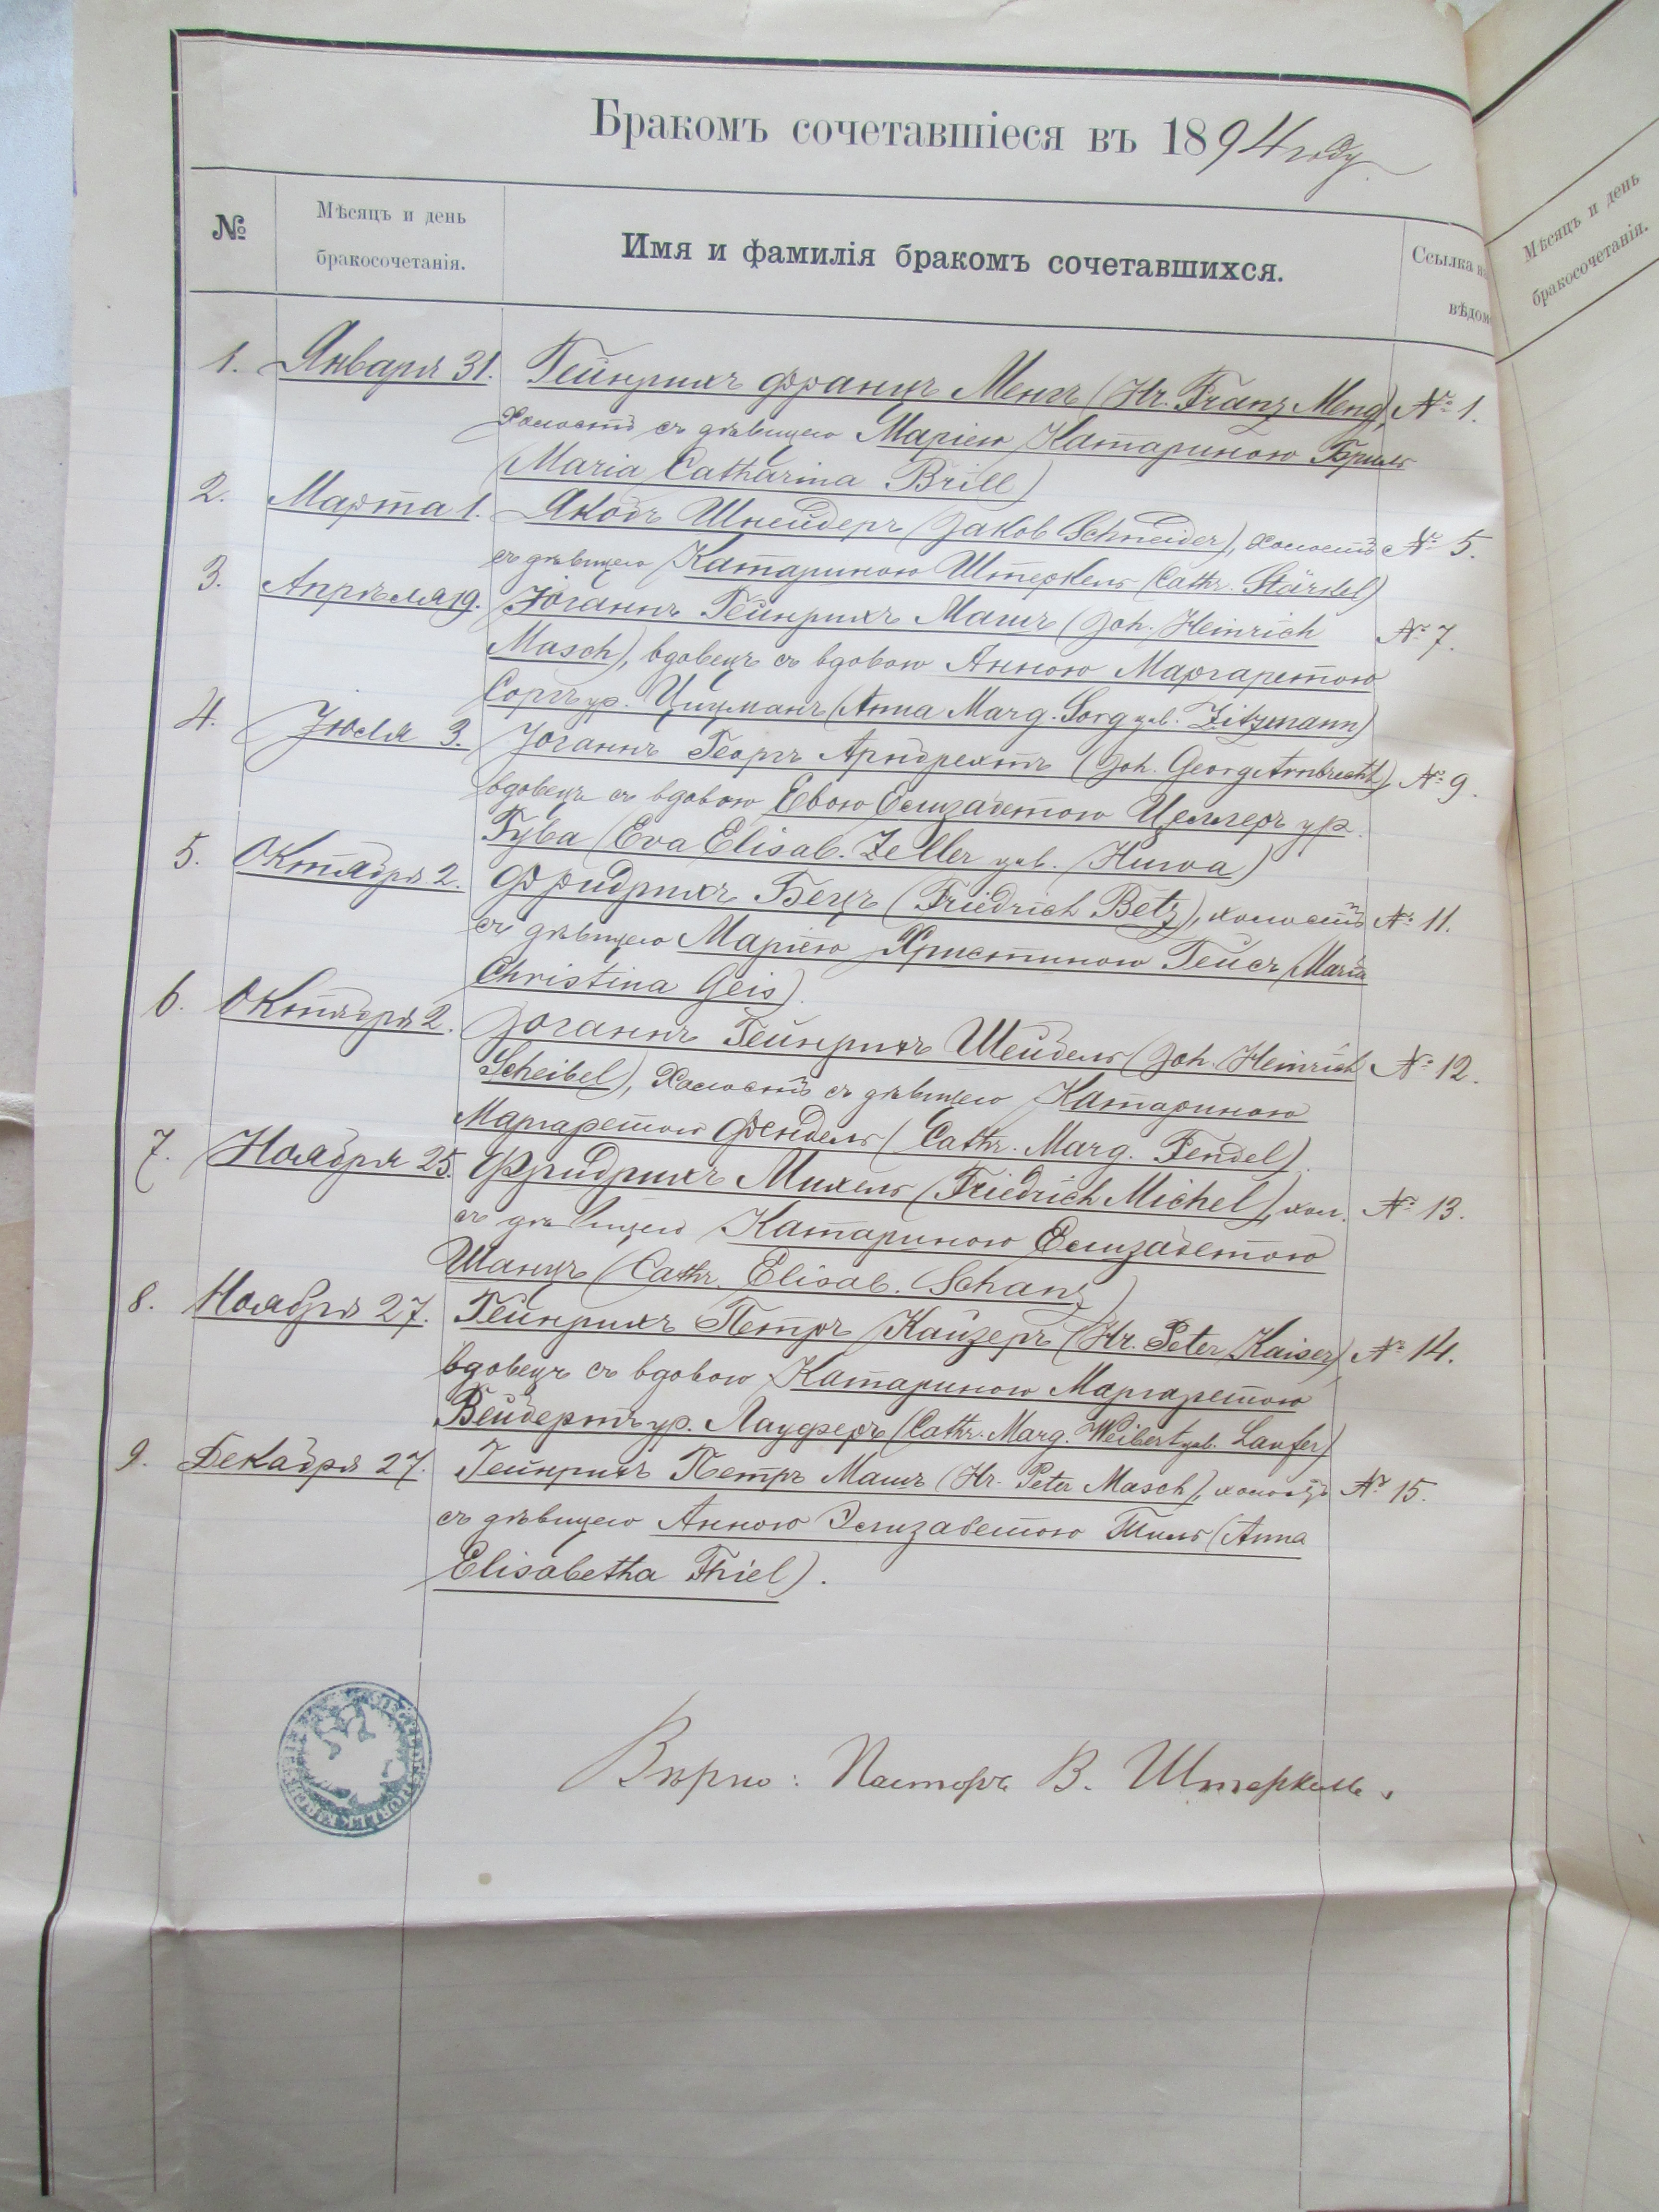 Бракомъ сочетавшіеся въ 1894 году.
№
Мѣсяцъ и день
бракосочетанія.
Имя и фамилія бракомъ сочетавшихся.
Ссылка
вѣдом
Мѣсяцъ и день
бракосочетанія.
1. Января 31. Гейнрихъ Францъ Менгъ (Hr. Franz Meng), № 1.
холостъ съ дѣвицею Маріею Катариною Бриль
(Maria Catharina Brill)
2. Марта 1. Якобъ Шнейдеръ (Jakob Schneider), холостъ № 5.
съ дѣвицею Катариною Штеркель (Cath. Stärkel)
3. Апрѣля 19. Іоганнъ Гейнрихъ Машъ (Joh. Heinrich № 7.
Masch), вдовецъ съ вдовою Анною Маргаретою
Соргъ ур. Цицманъ (Anna Marg. Sorg geb. Zitzmann)
4. Іюля 3. Іоганнъ Георгъ Арнбрехтъ (Joh. Georg Arnbrecht), № 9.
вдовецъ съ вдовою Евою Елизабетою Целлеръ ур.
Гува (Eva Elisab. Zeller geb. Huwa)
5. Октября 2. Фридрихъ Бецъ (Friedrich Betz), холостъ № 11.
съ дѣвицею Маріею Христиною Гейсъ (Maria
Christina Geis).
6. Октября 2. Іоганнъ Гейнрихъ Шейбель (Joh. Heinrich № 12.
Scheibel), холостъ съ дѣвицею Катариною
Маргаретою Фендель (Cath. Marg. Fendel).
7. Ноября 25. Фридрихъ Михель (Friedrich Michel), хол. № 13.
съ дѣвицею Катариною Елизабетою
Шанцъ (Cath. Elisab. Schanz)
8. Ноября 27. Гейнрихъ Петръ Кайзеръ (Hr. Peter Kaiser), № 14.
вдовецъ съ вдовою Катариною Маргаретою
Вейбертъ ур. Лауферъ (Cath. Marg. Weibert geb. Laufer)
9. Декабря 27. Гейнрихъ Петръ Машъ (Hr. Peter Masch), холостъ № 15.
съ дѣвицею Анною Элизабетою Тиль (Anna
Elisabetha Thiel).
Вѣрно: Пасторъ В. Штеркель.